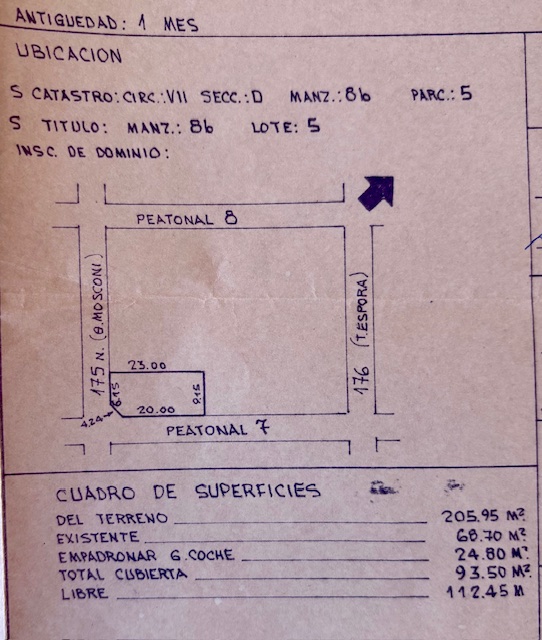 ANTIGUEDAD: 1 MES
UBICACION
S CATASTRO: CIRC.: VII SECC.: D MANZ.: 8b PARC.: 5
S TITULO: MANZ.: 8b LOTE: 5
INSC. DE DOMINIO:
PEATONAL 8
175 N. (G. MOSCONI)
176 (T. ESPORA)
23.00
6.15
9.15
4.24
20.00
PEATONAL 7
CUADRO DE SUPERFICIES
DEL TERRENO 205.95 M²
EXISTENTE 68.70 M²
EMPADRONAR G. COCHE 24.80 M²
TOTAL CUBIERTA 93.50 M²
LIBRE 112.45 M